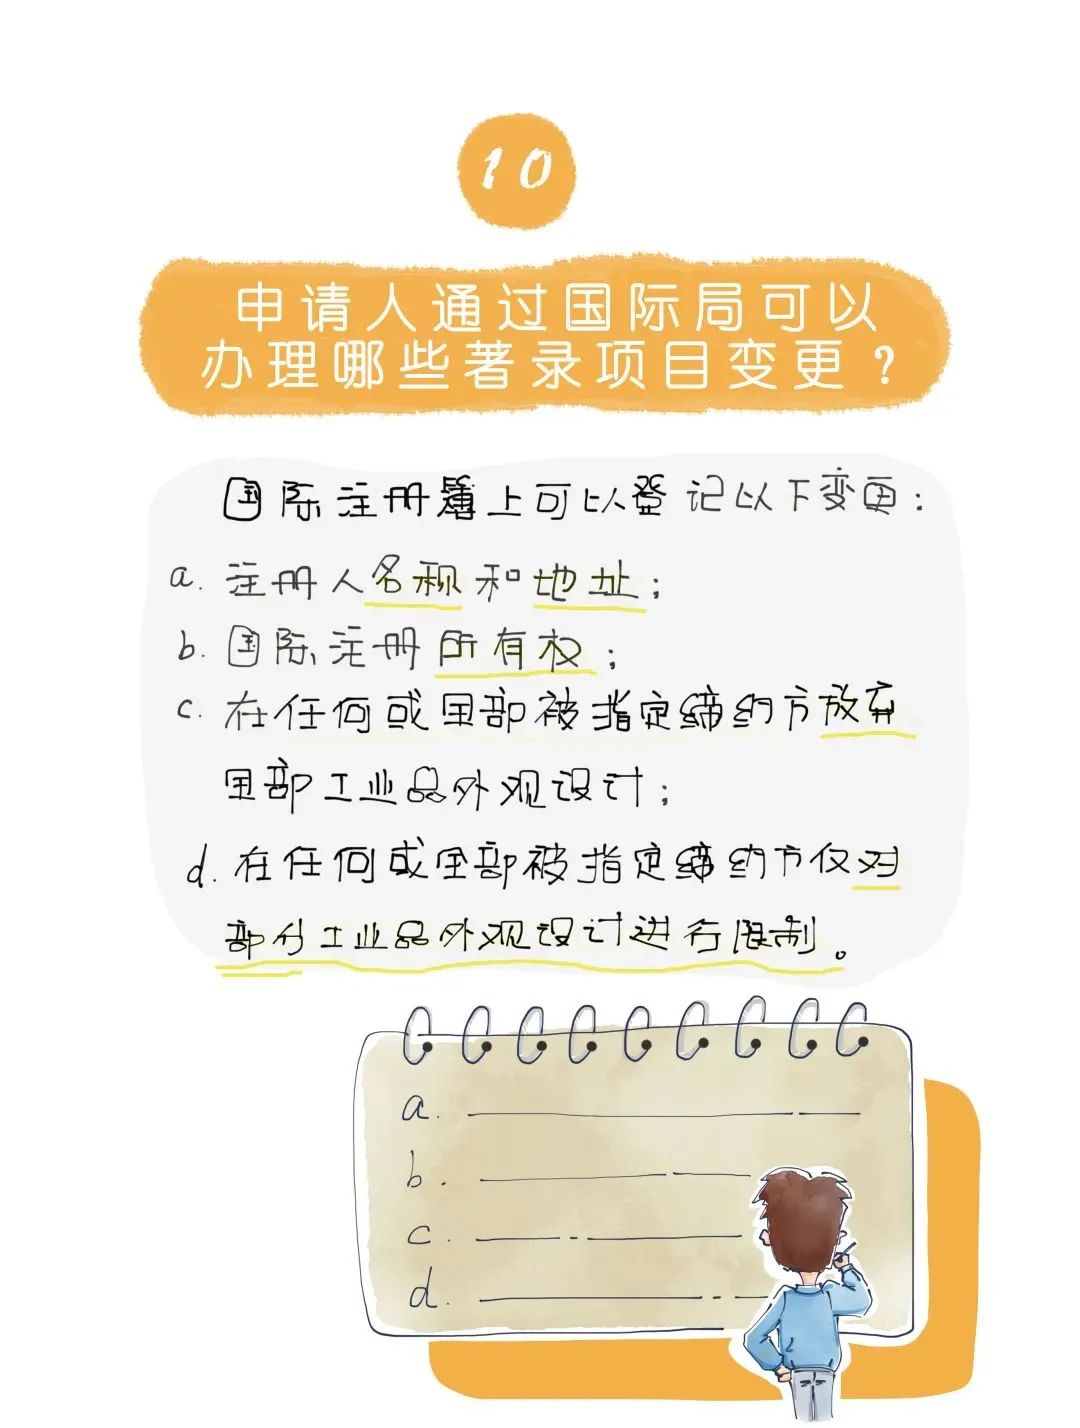 10
申请人通过国际局可以
办理哪些著录项目变更？
国际注册簿上可以登记以下变更：
a. 注册人名称和地址；
b. 国际注册所有权；
c. 在任何或全部被指定缔约方放弃
全部工业品外观设计；
d. 在任何或全部被指定缔约方仅对
部分工业品外观设计进行限制。
a.
b.
c.
d.